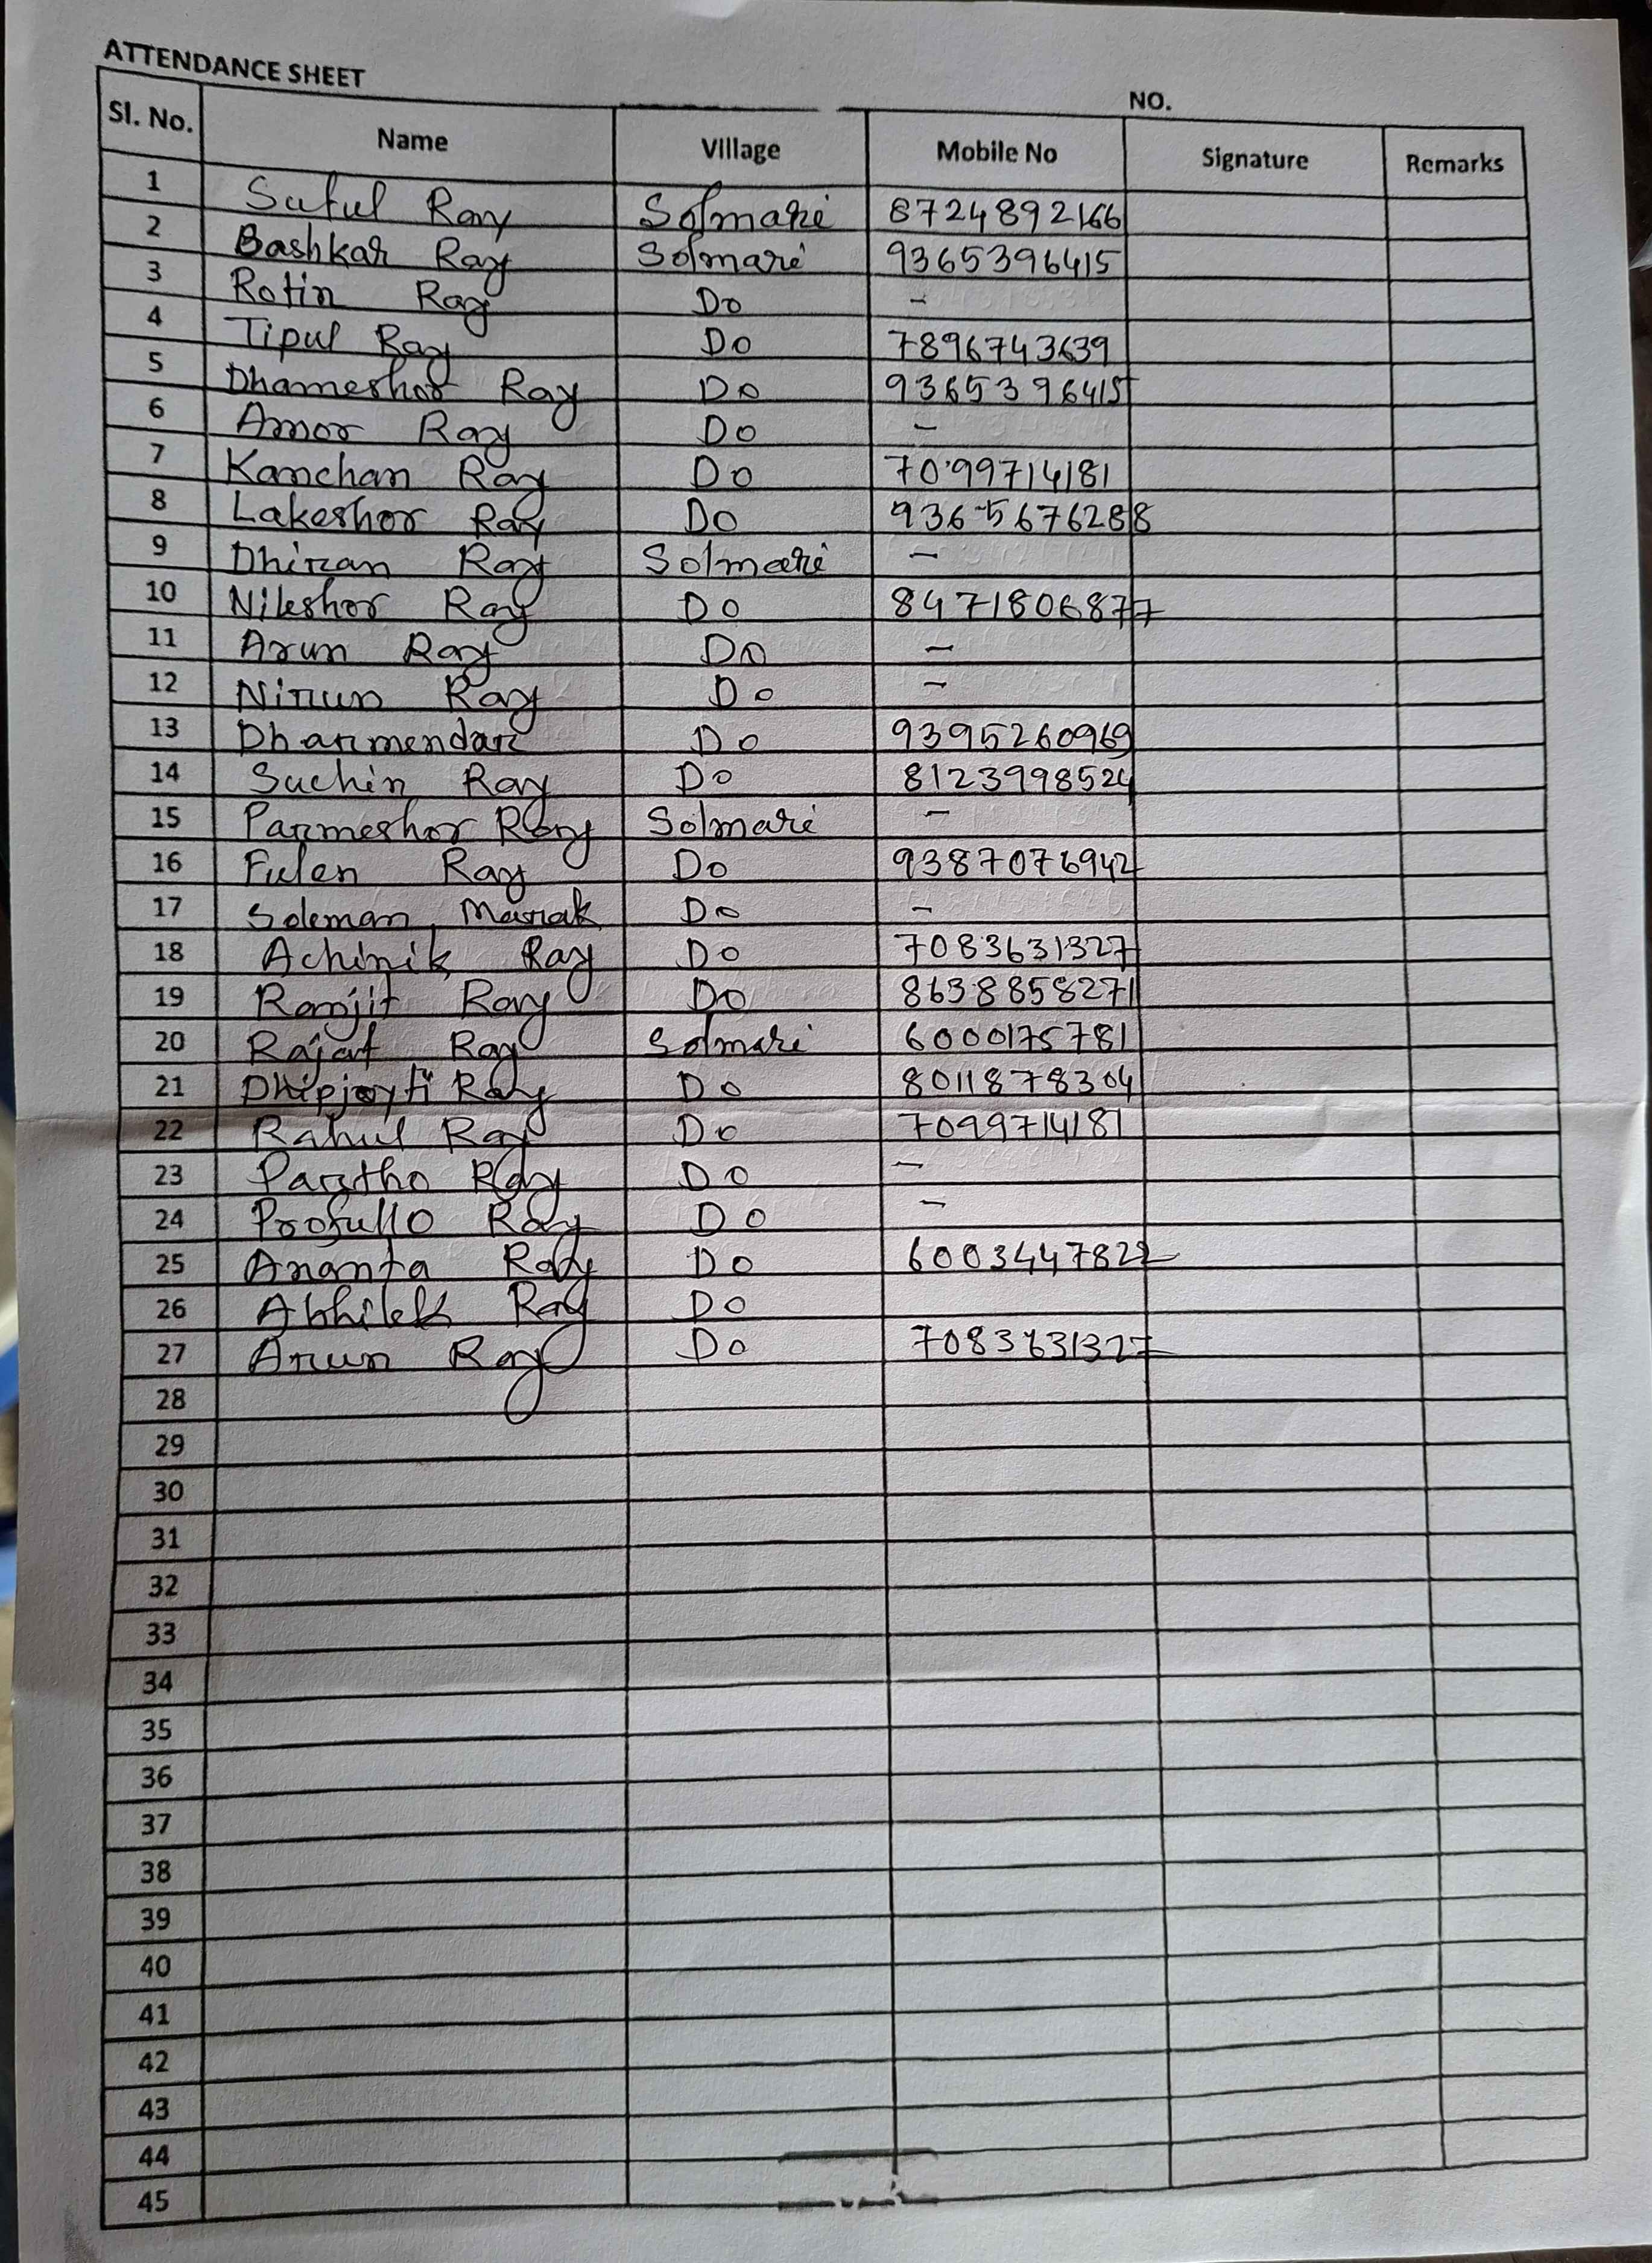 ATTENDANCE SHEET
NO.
Sl. No. Name Village Mobile No Signature Remarks
1 Saful Ray Solmari 8724892166
2 Bashkar Ray Solmari 9365396415
3 Rotin Ray Do -
4 Tipul Ray Do 7896743639
5 Dhameshor Ray Do 9365396415
6 Amor Ray Do -
7 Kanchan Ray Do 7099714181
8 Lakeshor Ray Do 9365676288
9 Dhiran Ray Solmari -
10 Nileshor Ray Do 8471806877
11 Arun Ray Do -
12 Nirun Ray Do -
13 Dharmendar Do 9395260969
14 Suchin Ray Do 8123998524
15 Parmeshor Ray Solmari -
16 Fulen Ray Do 9387076942
17 Soleman Marak Do -
18 Achinik Ray Do 7083631327
19 Ramjit Ray Do 8638858271
20 Rajat Ray Solmari 6000175781
21 Dhipjoyti Ray Do 8011878304
22 Rahul Ray Do 7099714181
23 Partho Ray Do -
24 Profullo Ray Do -
25 Ananta Ray Do 6003447822
26 Abhilek Ray Do
27 Arun Ray Do 7083631327
28
29
30
31
32
33
34
35
36
37
38
39
40
41
42
43
44
45